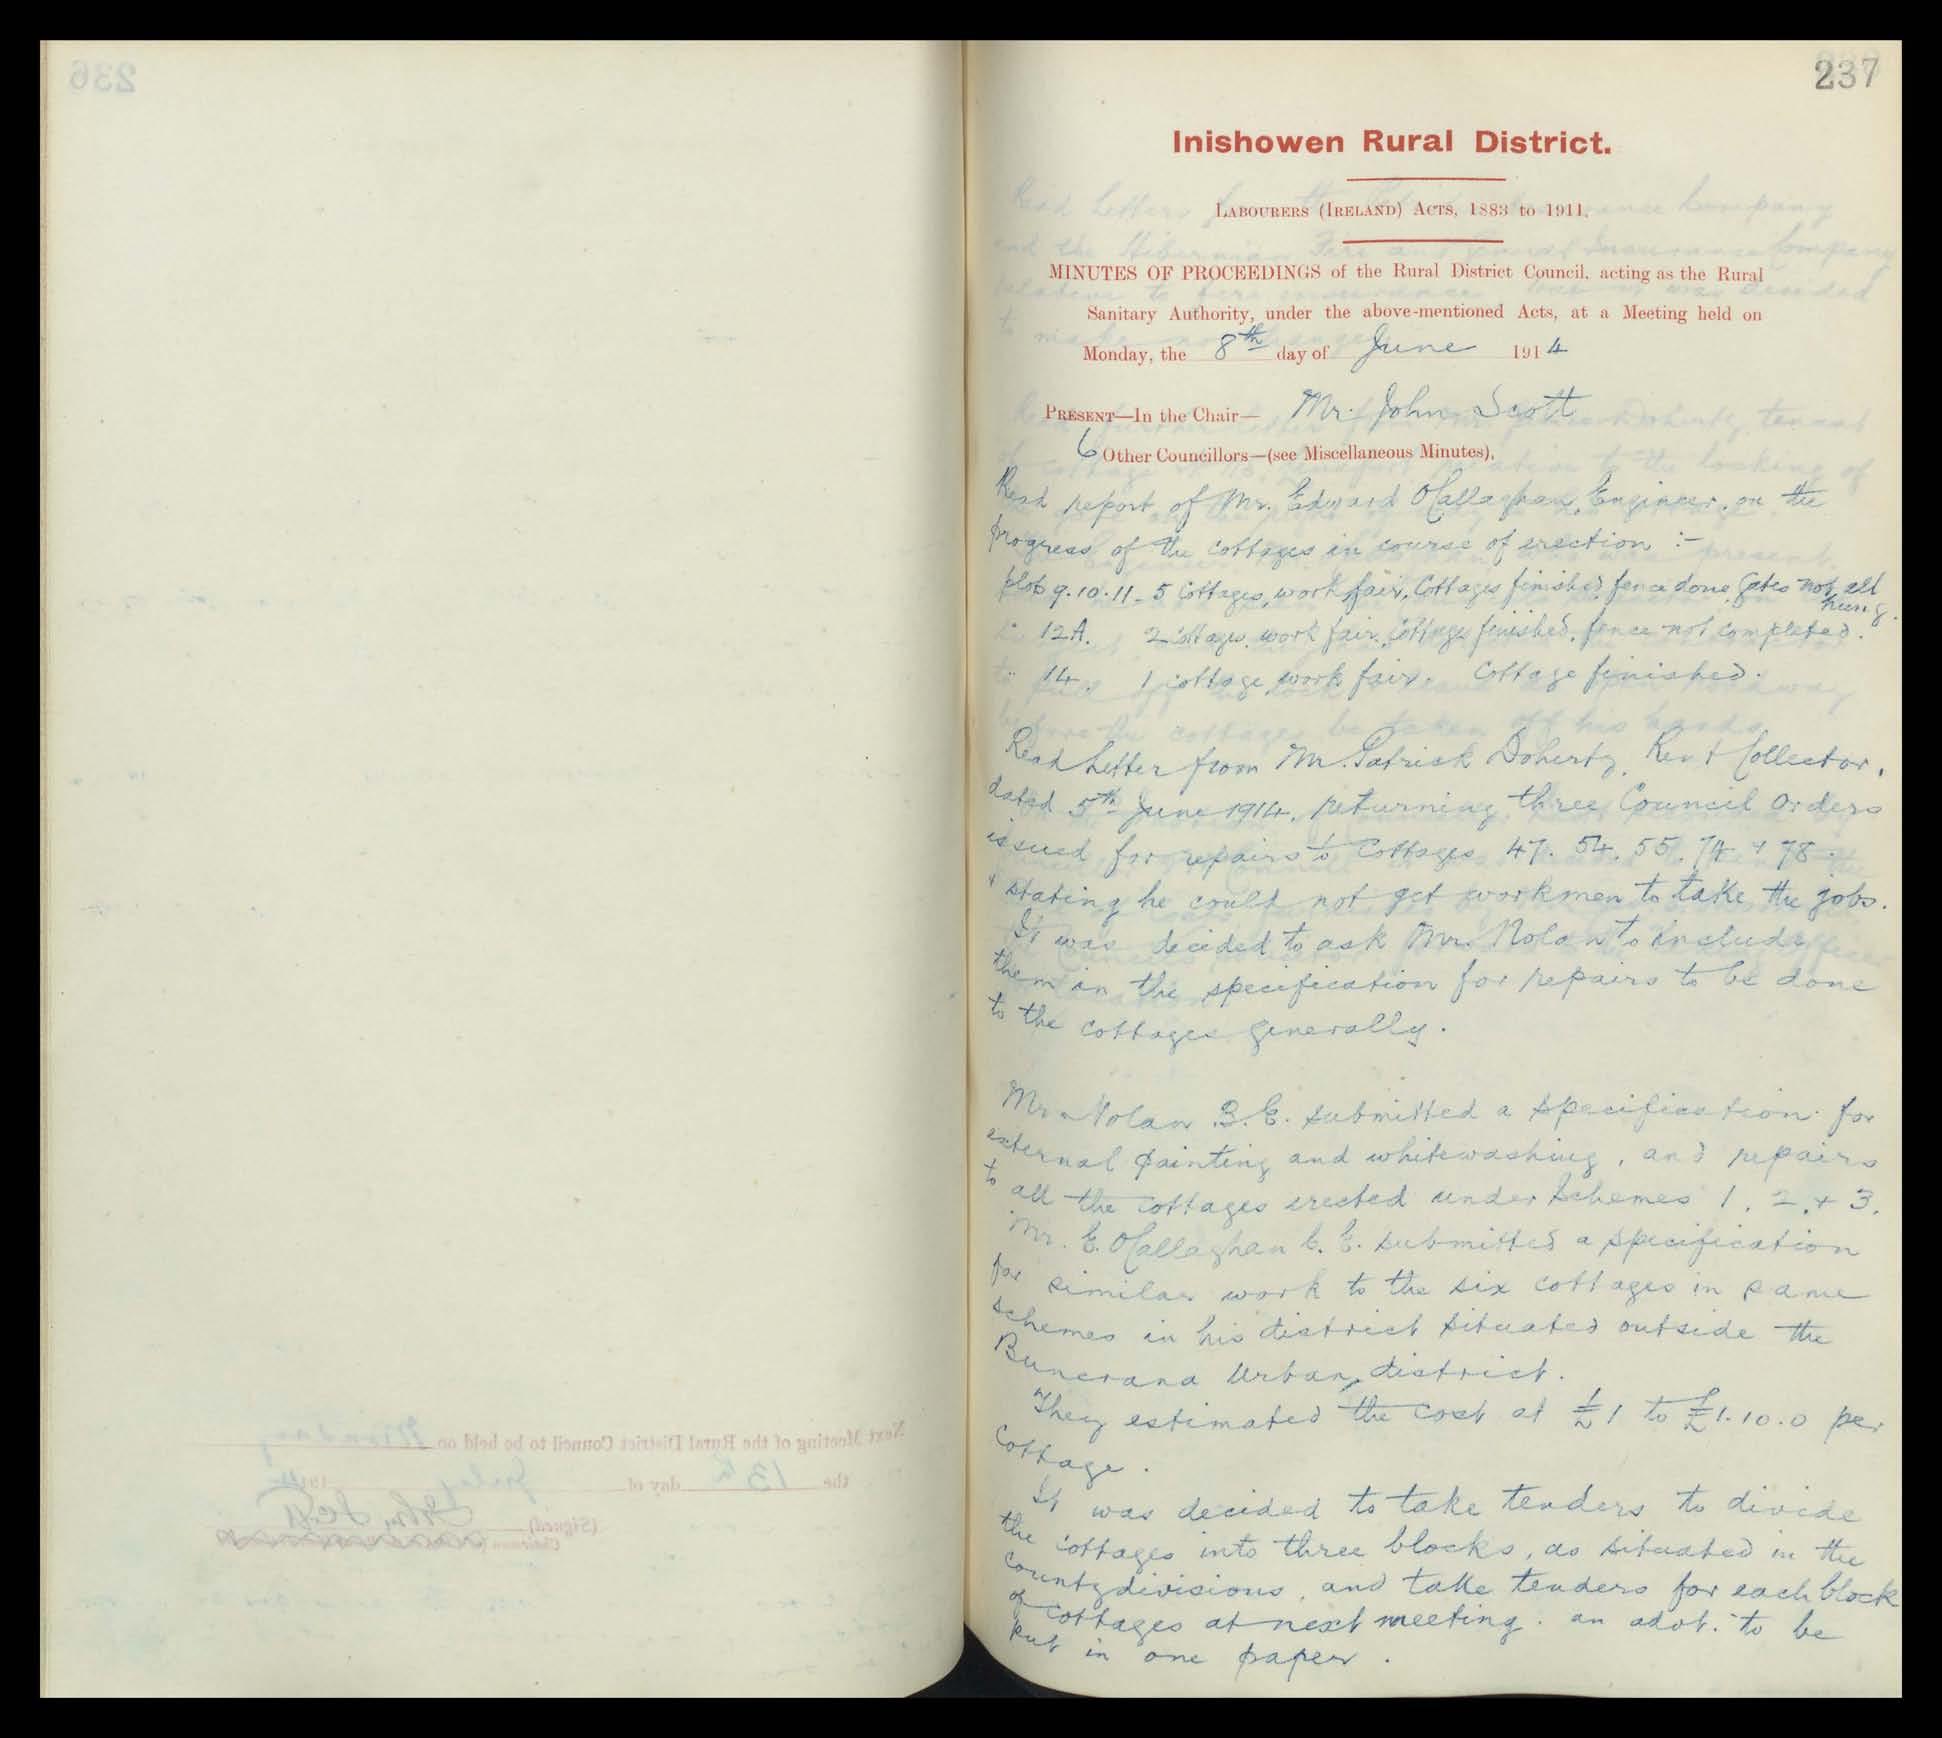 236
Next Meeting of the Rural District Council to be held on Monday
the 13th day of July 1914
(Signed) John Scott
Chairman
237
Inishowen Rural District.
LABOURERS (IRELAND) ACTS, 1883 to 1911.
MINUTES OF PROCEEDINGS of the Rural District Council, acting as the Rural
Sanitary Authority, under the above-mentioned Acts, at a Meeting held on
Monday, the 8th day of June 1914
PRESENT—In the Chair— Mr. John Scott
6 Other Councillors—(see Miscellaneous Minutes),
Read report of Mr. Edward O'Callaghan, Engineer, on the
progress of the cottages in course of erection :-
plots 9. 10. 11 - 5 Cottages, work fair, Cottages finished, fence done, Gates not all
hung.
" 12A. 2 Cottages, work fair, Cottage finished, fence not completed.
" 14. 1 cottage, work fair. Cottage finished.
Read Letter from Mr. Patrick Doherty, Rent Collector,
dated 5th June 1914, returning three Council Orders
issued for repairs to Cottages 47. 54. 55. 74 + 78.
+ stating he could not get workmen to take the jobs.
It was decided to ask Mr. Nolan to include
them in the specification for repairs to be done
to the cottages generally.
Mr. Nolan B.E. submitted a specification for
external painting and whitewashing, and repairs
to all the cottages erected under Schemes 1, 2, + 3.
Mr. E. O'Callaghan C.E. submitted a specification
for similar work to the six cottages in same
schemes in his district situated outside the
Buncrana Urban district.
They estimated the cost at £1 to £1.10.0 per
cottage.
It was decided to take tenders to divide
the cottages into three blocks, as situated in the
county divisions, and take tenders for each block
of cottages at next meeting. an advt. to be
put in one paper.